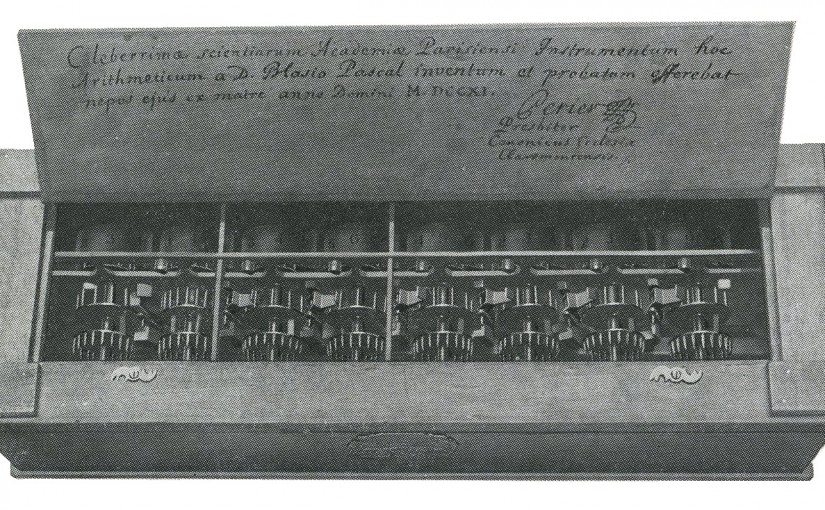 Cleberrimæ scientiarum Academiæ Parisiensi Instrumentum hoc
Arithmeticum a D. Blasio Pascal inventum et probatam offerebat
nepos ejus ex matre anno Domini M. DCCXI.
Perier
Presbiter
Canonicus Ecclesiæ
Claromontensis.